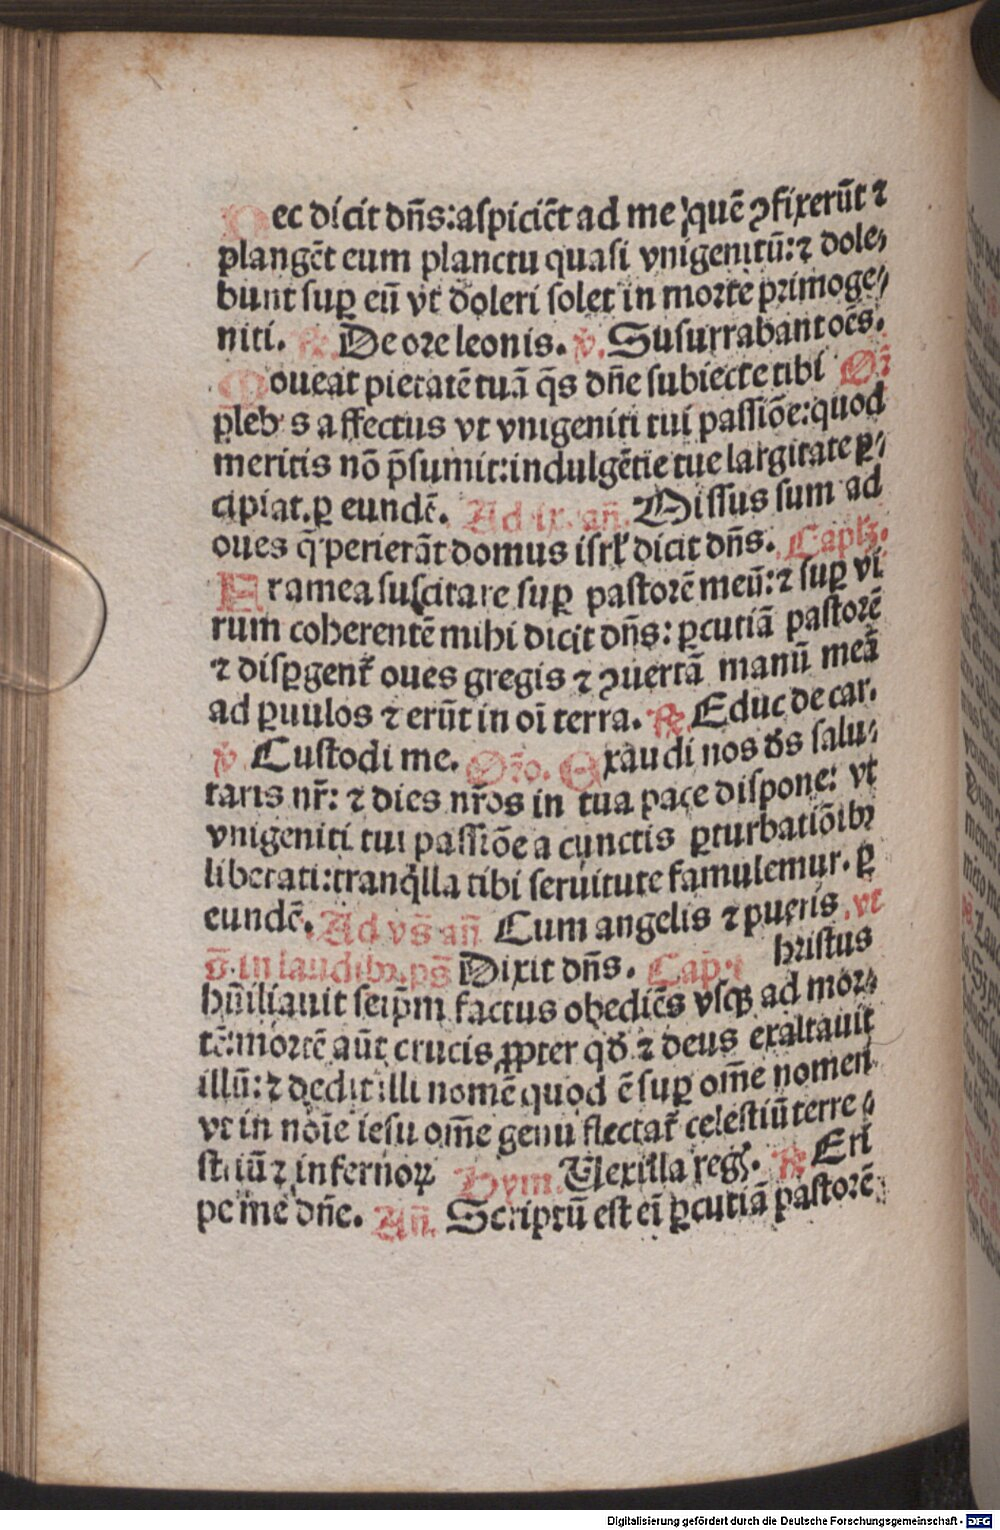 Hec dicit dñs:aspiciēt ad me quē ꝯfixerūt ⁊
plangēt eum planctu quasi vnigenitū:⁊ dole⸗
bunt suꝑ eū vt doleri solet in morte primoge⸗
niti. ℟. De ore leonis. ℣. Susurrabant oēs.
Moueat pietatē tuā q̄s dñe subiecte tibi Or̄
plebis affectus vt vnigeniti tui passiōe:quod
meritis nō p̄sumit:indulgētie tue largitate ꝑ⸗
cipiat.ꝑ eundē. Ad ix. añ. Missus sum ad
oues q̄ perierāt domus isrl̓ dicit dñs. Capl̓ꝫ.
Framea suscitare suꝑ pastorē meū:⁊ suꝑ vi
rum coherentē mihi dicit dñs: ꝑcutiā pastorē
⁊ disꝑgent̓ oues gregis ⁊ ꝯuertā manū meā
ad ꝑuulos ⁊ erūt in oī terra. ℟. Educ de car.
℣. Custodi me. Oro. Exaudi nos ds̄ salu⸗
taris nr̄: ⁊ dies nr̄os in tua pace dispone: vt
vnigeniti tui passiōe a cunctis ꝑturbatiōibꝰ
liberati:tranq̇lla tibi seruitute famulemur. ꝑ
eundē. Ad vs̄ añ Cum angelis ⁊ pueris .vt
s̄. in laudibꝰ. ps̄ Dixit dñs. Cap. hristus
hūiliauit seip̄m factus obediēs vsqꝫ ad mor⸗
tē:mortē aūt crucis ꝓpter qd̄ ⁊ deus exaltauit
illū:⁊ dedit illi nomē quod ē suꝑ om̄e nomen
vt in noīe iesu om̄e genu flectat̓ celestiū terre⸗
striū ⁊ infernoꝝ Hym. Vexilla reg. ℟ Eri
pe me dñe. Añ. Scriptū est eī ꝑcutiā pastorē:
Digitalisierung gefördert durch die Deutsche Forschungsgemeinschaft - DFG